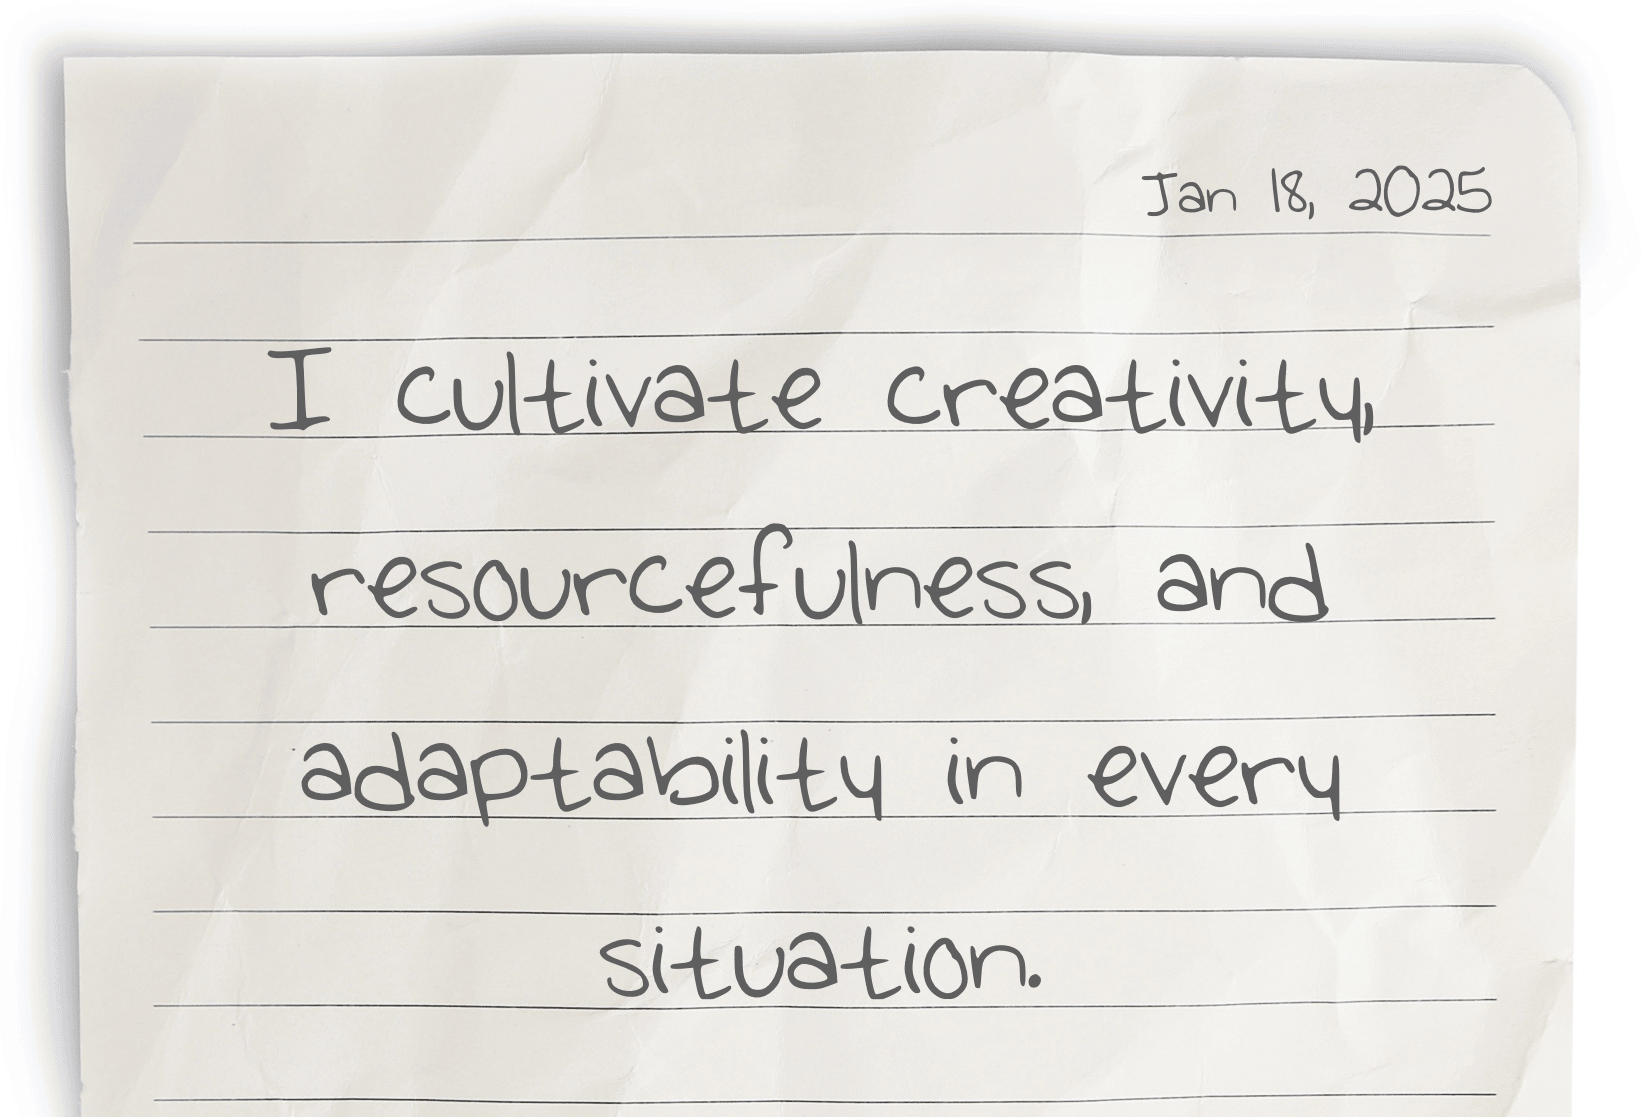 Jan 18, 2025
I cultivate creativity,
resourcefulness, and
adaptability in every
situation.